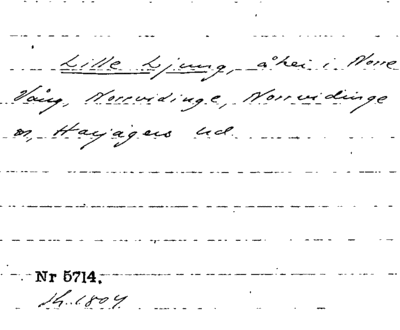 Lille Ljung, åker i Norre
Vång, Norrvidinge, Norrvidinge
sn, Harjagers hd.
Nr 5714.